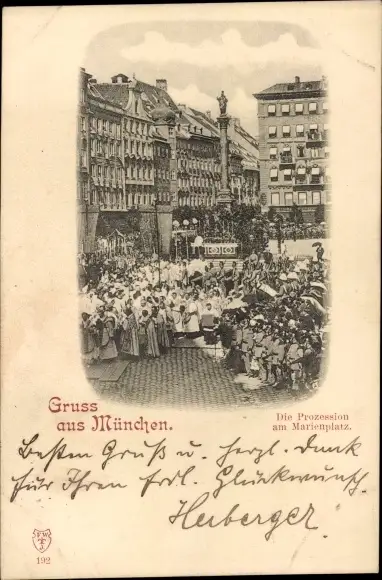 Gruss
aus München.
Die Prozession
am Marienplatz.
Besten Gruß u. herzl. Dank
für Ihren frdl. Glückwunsch.
Heuberger
192